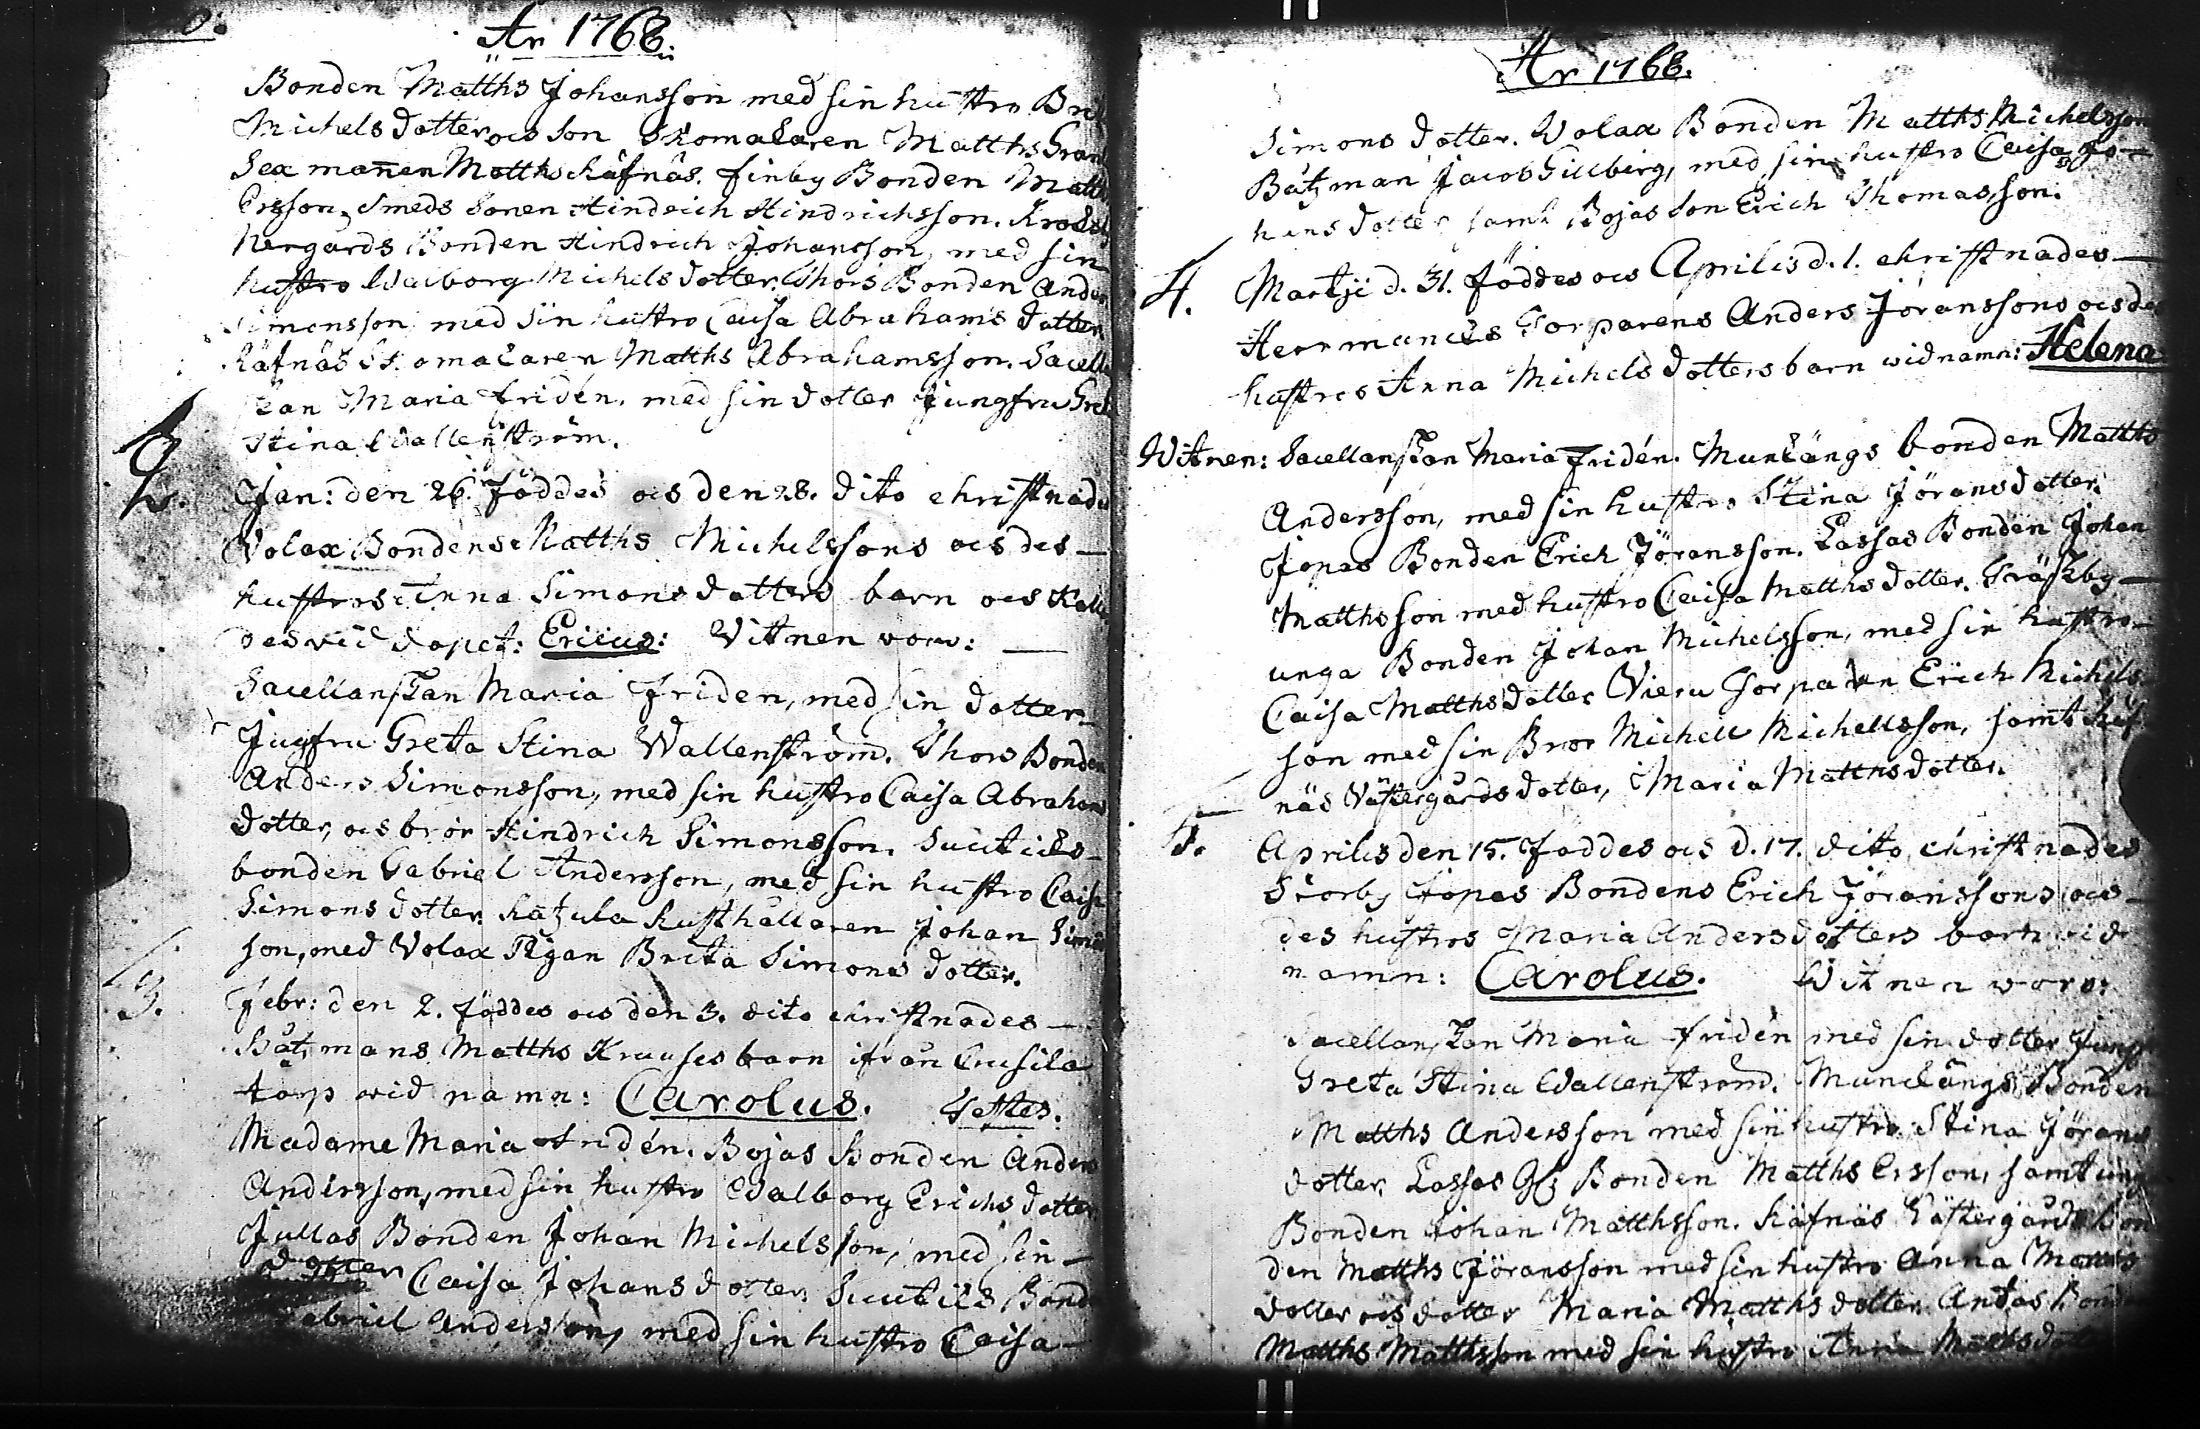 År 1768.
Bonden Matths Johansson med sin hustro
Michels dotter ocs son Skomakaren Matths
Sexmanen Matths Räfnäs. Finby Bonden Matths
Ersson, Smeds Sonen Hindrich Hindrichsson.
Nergårds Bonden Hindrich Johansson, med sin
hustro Walborg Michels dotter. Thors Bonden Anders
Simonsson med sin hustro Caisa Abrahams dotter,
Räfnäs Skomakaren Matths Abrahamsson. Sacell
skan Maria Fridén. med sin dotter Jungfru Greta
Stina Wallenström.
2. Jan: den 26. föddes ocs den 28. dito christnades
Volax Bondens Matths Michelssons ocs des
hustros Anna Simons dotters barn ocs kalla
des vid dopet: Ericus: Vittnen woro:
Sacellanskan Maria Friden, med sin dotter
Jugfru Greta Stina Wallenström. Thors Bonden
Anders Simonsson, med sin hustro Caisa Abrahams
dotter, ocs bror Hindrich Simonsson.
bonden Gabriel Andersson, med sin hustro Caisa
Simons dotter. Rusthållaren Johan Simons
son, med Volax Pigan Brita Simons dotter.
3. Febr: den 2. föddes ocs den 3. dito christnades
Båtzmans Matths Krauses barn ifrån
torp wid namn: Carolus. Testes.
Madame Maria Fridén. Bojas Bonden Anders
Andersson, med sin hustro Walborg Erichs dotter
Jullas Bonden Johan Michelsson, med sin
dotter Caisa Johans dotter.
Gabriel Andersson, med sin hustro Caisa
År 1768.
Simons dotter. Volax Bonden Matths Michelsson
Båtzman Jacob Gillberg, med sin hustro Caisa Jo-
hans dotter samt Bojas Son Erich Thomasson.
4. Martji d. 31. föddes ocs Aprilis d. 1. christnades
Herrmances Torparens Anders Jöranssons ocs des
hustros Anna Michels dotters barn wid namn: Helena
Witnen: Sacellanskan Maria Fridén. Munkängs bonden Matths
Andersson, med sin hustro Stina Jörans dotter.
Jopas Bonden Erich Jöransson. Lassas Bonden Johan
Matthsson med hustro Caisa Matths dotter. Träskby
unga Bonden Johan Michelsson, med sin hustro
Caisa Matths dotter Torparen Erich Michels
son med sin Bror Michell Michellsson, samt Räf
näs Västergårds dotter, Maria Matths dotter.
5. Aprilis den 15. Föddes ocs d. 17. dito christnades
Storby Jopas Bondens Erich Jöranssons ocs
des hustros Maria Anders dotters barn vid
namn: Carolus. Witnen woro:
Sacellanskan Maria Fridén med sin dotter Jungfr
Greta Stina Wallenström. Munckängs Bonden
Matths Andersson med sin hustro Stina Jörans
dotter. Lassas Bonden Matths Ersson, samt unga
Bonden Johan Matthsson. Räfnäs Västergårds Bon
den Matths Jöransson med sin hustro Anna Matths
dotter ocs dotter Maria Matths dotter. Antas Bonden
Matths Matthsson med sin hustro Anna Matths dotter